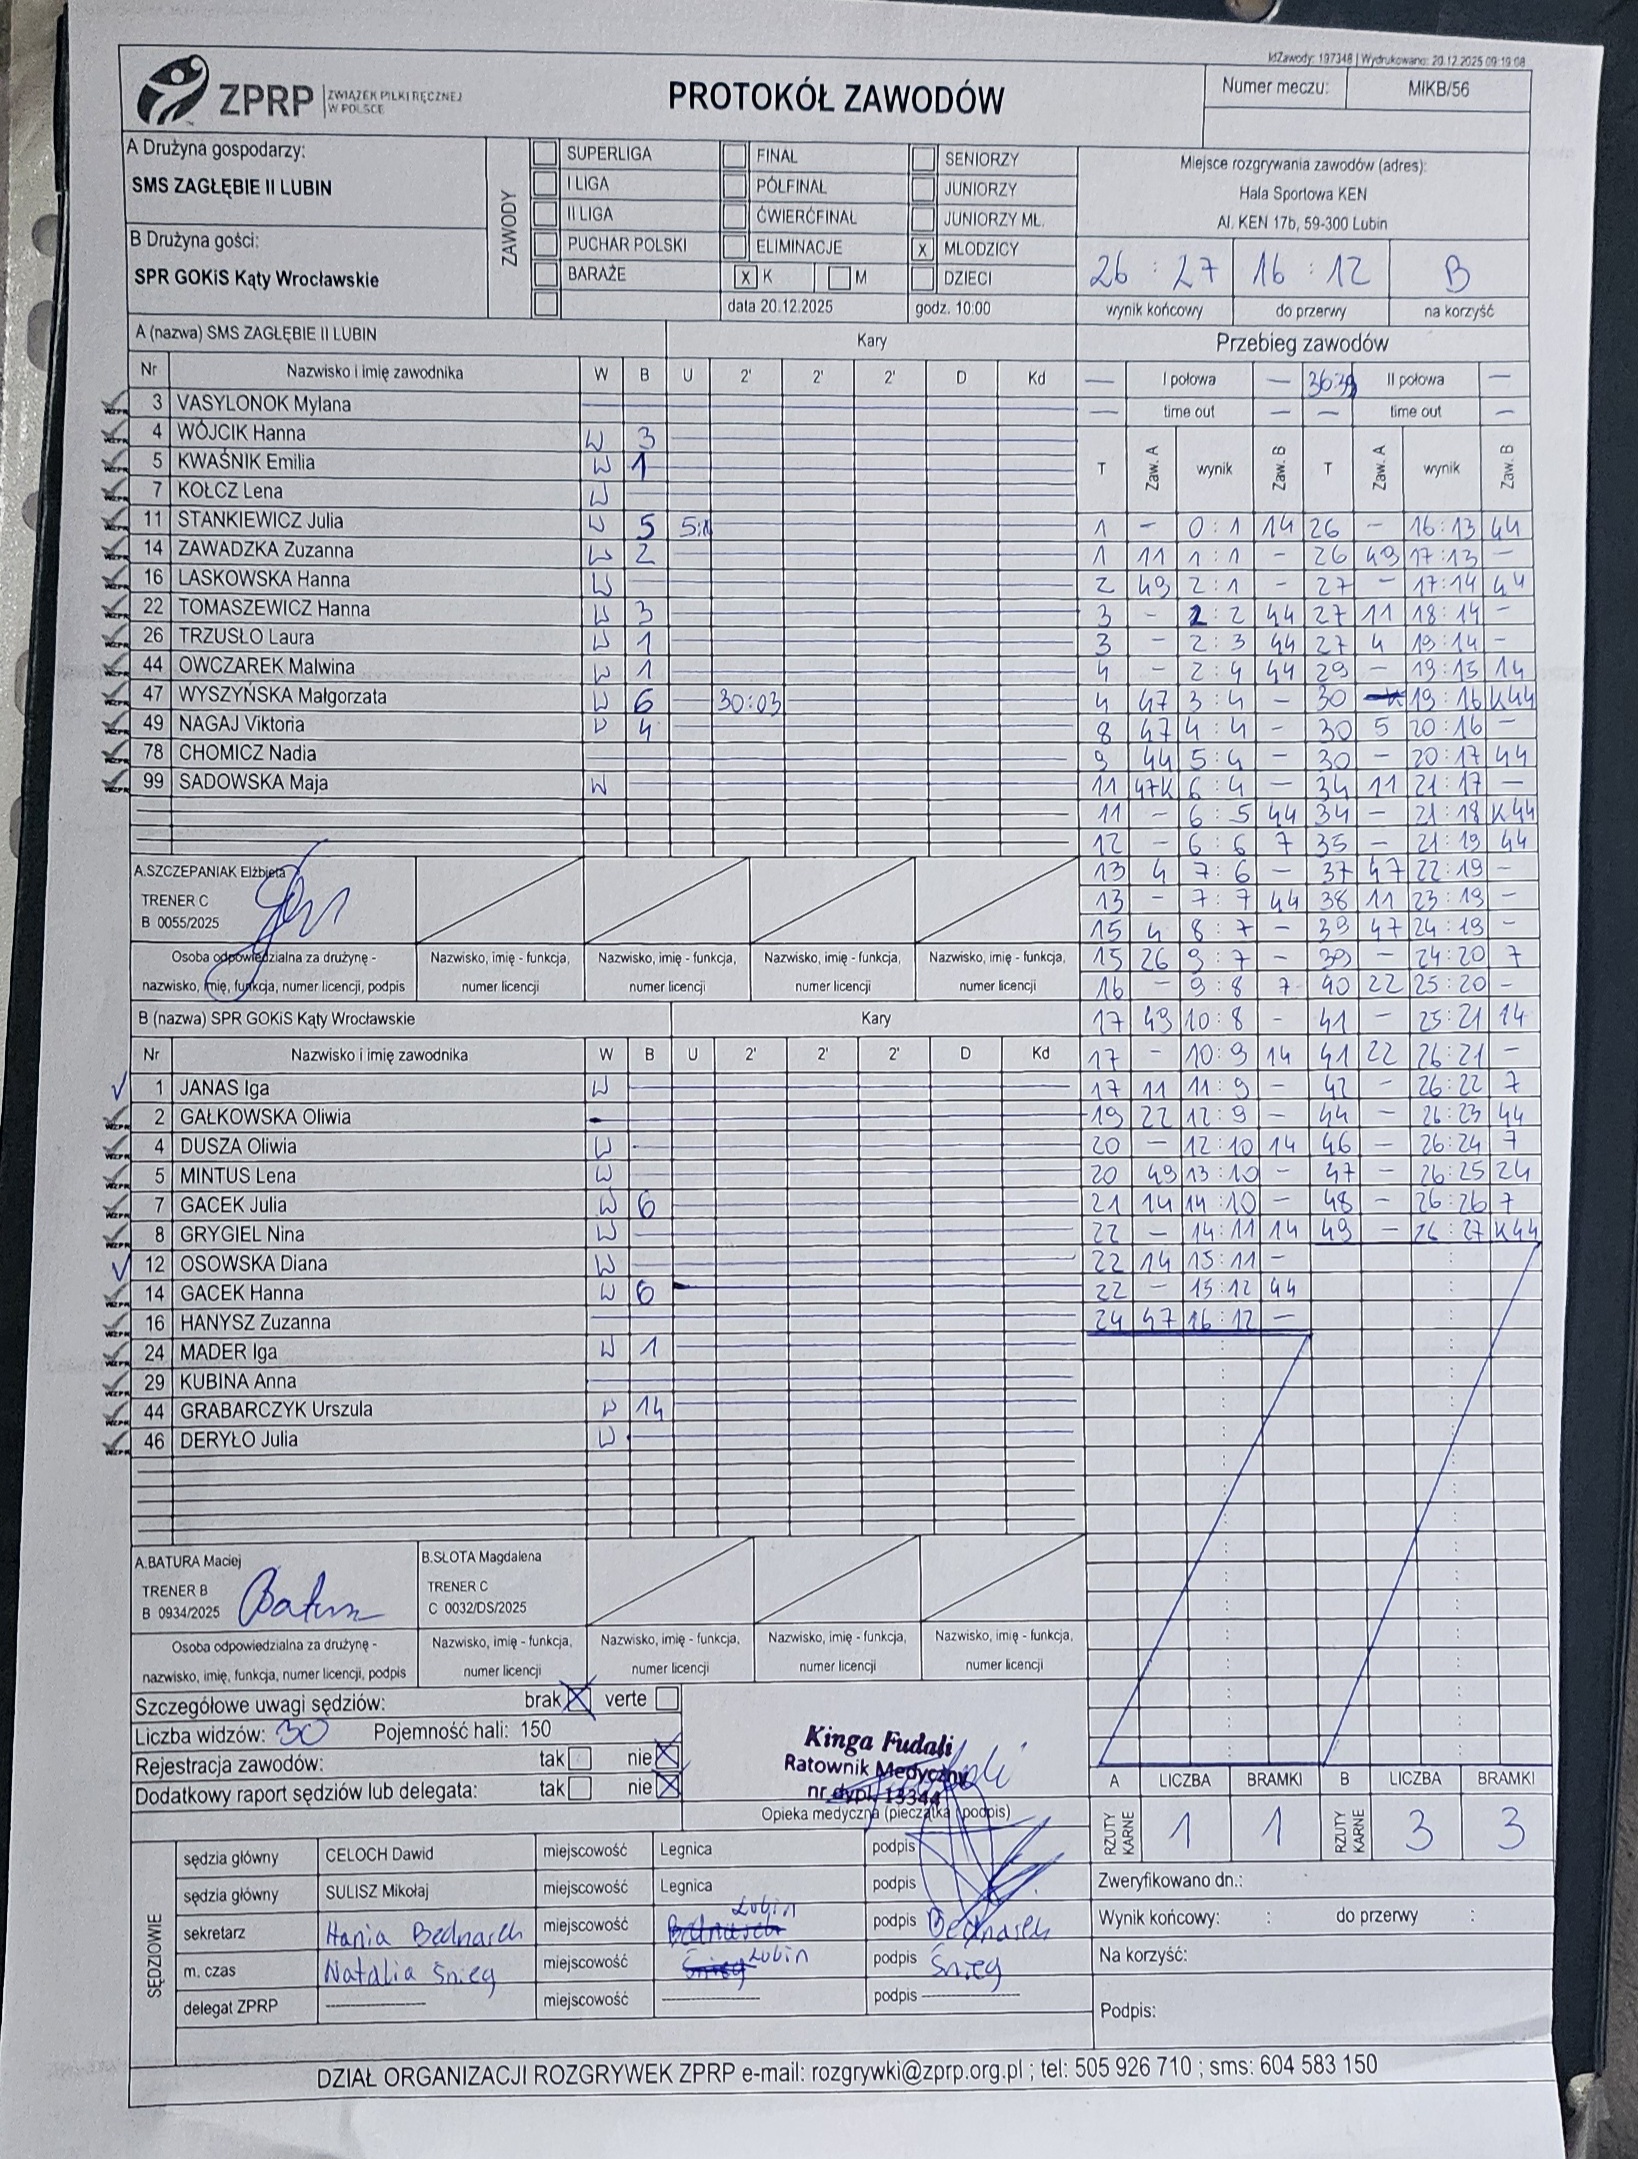 IdZawody: 197348 | Wydrukowano: 20.12.2025 09:19:08
ZPRP ZWIĄZEK PIŁKI RĘCZNEJ W POLSCE
PROTOKÓŁ ZAWODÓW
Numer meczu: MIKB/56
A Drużyna gospodarzy:
SMS ZAGŁĘBIE II LUBIN
B Drużyna gości:
SPR GOKiS Kąty Wrocławskie
ZAWODY
SUPERLIGA FINAŁ SENIORZY
I LIGA PÓŁFINAŁ JUNIORZY
II LIGA ĆWIERĆFINAŁ JUNIORZY MŁ.
PUCHAR POLSKI ELIMINACJE X MŁODZICY
BARAŻE X K M DZIECI
data 20.12.2025 godz. 10:00
Miejsce rozgrywania zawodów (adres):
Hala Sportowa KEN
Al. KEN 17b, 59-300 Lubin
26 : 27 16 : 12 B
wynik końcowy do przerwy na korzyść
A (nazwa) SMS ZAGŁĘBIE II LUBIN Kary
Nr Nazwisko i imię zawodnika W B U 2' 2' 2' D Kd
3 VASYLONOK Mylana
4 WÓJCIK Hanna W 3
5 KWAŚNIK Emilia W 1
7 KOŁCZ Lena W
11 STANKIEWICZ Julia W 5
14 ZAWADZKA Zuzanna W 2
16 LASKOWSKA Hanna W
22 TOMASZEWICZ Hanna W 3
26 TRZUSŁO Laura W 1
44 OWCZAREK Malwina W 1
47 WYSZYŃSKA Małgorzata W 6 30:03
49 NAGAJ Viktoria W 4
78 CHOMICZ Nadia
99 SADOWSKA Maja W
A.SZCZEPANIAK Elżbieta
TRENER C
B 0055/2025
Osoba odpowiedzialna za drużynę - nazwisko, imię, funkcja, numer licencji, podpis
Nazwisko, imię - funkcja, numer licencji
Nazwisko, imię - funkcja, numer licencji
Nazwisko, imię - funkcja, numer licencji
Nazwisko, imię - funkcja, numer licencji
B (nazwa) SPR GOKiS Kąty Wrocławskie Kary
Nr Nazwisko i imię zawodnika W B U 2' 2' 2' D Kd
1 JANAS Iga W
2 GAŁKOWSKA Oliwia
4 DUSZA Oliwia W
5 MINTUS Lena W
7 GACEK Julia W 6
8 GRYGIEL Nina W
12 OSOWSKA Diana W
14 GACEK Hanna W 6
16 HANYSZ Zuzanna
24 MADER Iga W 1
29 KUBINA Anna
44 GRABARCZYK Urszula W 14
46 DERYŁO Julia W
A.BATURA Maciej
TRENER B
B 0934/2025
Batura
B.SLOTA Magdalena
TRENER C
C 0032/DS/2025
Osoba odpowiedzialna za drużynę - nazwisko, imię, funkcja, numer licencji, podpis
Nazwisko, imię - funkcja, numer licencji
Nazwisko, imię - funkcja, numer licencji
Nazwisko, imię - funkcja, numer licencji
Nazwisko, imię - funkcja, numer licencji
Przebieg zawodów
— I połowa — II połowa —
— time out — — time out —
T Zaw. A wynik Zaw. B T Zaw. A wynik Zaw. B
1 - 0:1 14 26 - 16:13 44
1 11 1:1 - 26 49 17:13 -
2 49 2:1 - 27 - 17:14 44
3 - 2:2 44 27 11 18:14 -
3 - 2:3 44 27 4 19:14 -
4 - 2:4 44 29 - 19:15 14
4 47 3:4 - 30 19:16 K44
8 47 4:4 - 30 5 20:16 -
9 44 5:4 - 30 - 20:17 44
11 47K 6:4 - 34 11 21:17 -
11 - 6:5 44 34 - 21:18 K44
12 - 6:6 7 35 - 21:19 44
13 4 7:6 - 37 47 22:19 -
13 - 7:7 44 38 11 23:19 -
15 4 8:7 - 39 47 24:19 -
15 26 9:7 - 39 - 24:20 7
16 - 9:8 7 40 22 25:20 -
17 49 10:8 - 41 - 25:21 14
17 - 10:9 14 41 22 26:21 -
17 11 11:9 - 42 - 26:22 7
19 22 12:9 - 44 - 26:23 44
20 - 12:10 14 46 - 26:24 7
20 49 13:10 - 47 - 26:25 24
21 14 14:10 - 48 - 26:26 7
22 - 14:11 14 49 - 26:27 K44
22 14 15:11 -
22 - 15:12 44
24 47 16:12 -
Szczegółowe uwagi sędziów: brak X verte
Liczba widzów: 30 Pojemność hali: 150
Rejestracja zawodów: tak nie X
Dodatkowy raport sędziów lub delegata: tak nie X
Kinga Fudali
Ratownik Medyczny
nr dypl. 13344
Opieka medyczna (pieczątka i podpis)
A LICZBA BRAMKI B LICZBA BRAMKI
RZUTY KARNE 1 1 RZUTY KARNE 3 3
SĘDZIOWIE
sędzia główny CELOCH Dawid miejscowość Legnica podpis
sędzia główny SULISZ Mikołaj miejscowość Legnica podpis
sekretarz Hania Bednarch miejscowość Lubin podpis Bednarch
m. czas Natalia Śnieg miejscowość Śnieg Lubin podpis Śnieg
delegat ZPRP miejscowość podpis
Zweryfikowano dn.:
Wynik końcowy: : do przerwy :
Na korzyść:
Podpis:
DZIAŁ ORGANIZACJI ROZGRYWEK ZPRP e-mail: rozgrywki@zprp.org.pl ; tel: 505 926 710 ; sms: 604 583 150